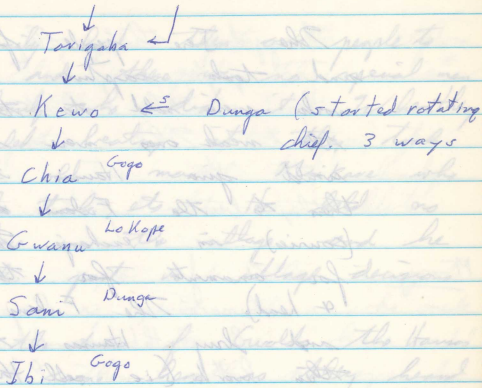 Torigaba
Kewo s Dunga (started rotating
chief. 3 ways
Chia Gogo
Gwanu Lo Kope
Sani Dunga
Ibi Gogo